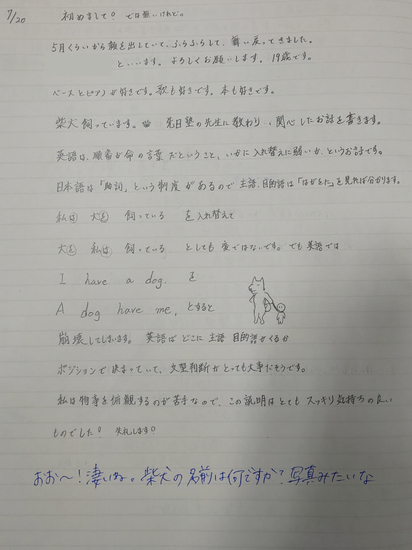 7/20
初めまして! では無いけれど。
5月くらいから顔を出していて、ふらふらして、舞い戻ってきました。
といいます。よろしくお願いします。19歳です。
ベースとピアノが好きです。歌も好きです。本も好きです。
柴犬飼っています。 先日塾の先生に教わり、関心したお話を書きます。
英語は、順番が命の言葉だということ、いかに入れ替えに弱いか、というお話です。
日本語は「助詞」という制度があるので主語、目的語は「はがをた」を見れば分かります。
私は 犬を 飼っている を入れ替えて
犬を 私は 飼っている としても変ではないです。でも英語では
I have a dog. を
A dog have me. とすると
崩壊してしまいます。 英語は どこに 主語 目的語がくるか
ポジションで 決まっていて、文型判断がとっても大事だそうです。
私は物事を俯瞰するのが苦手なので、この説明はとても スッキリ気持ちの良い
ものでした! 失礼します!
おお〜!凄いね。柴犬の名前は何ですか?写真みたいな